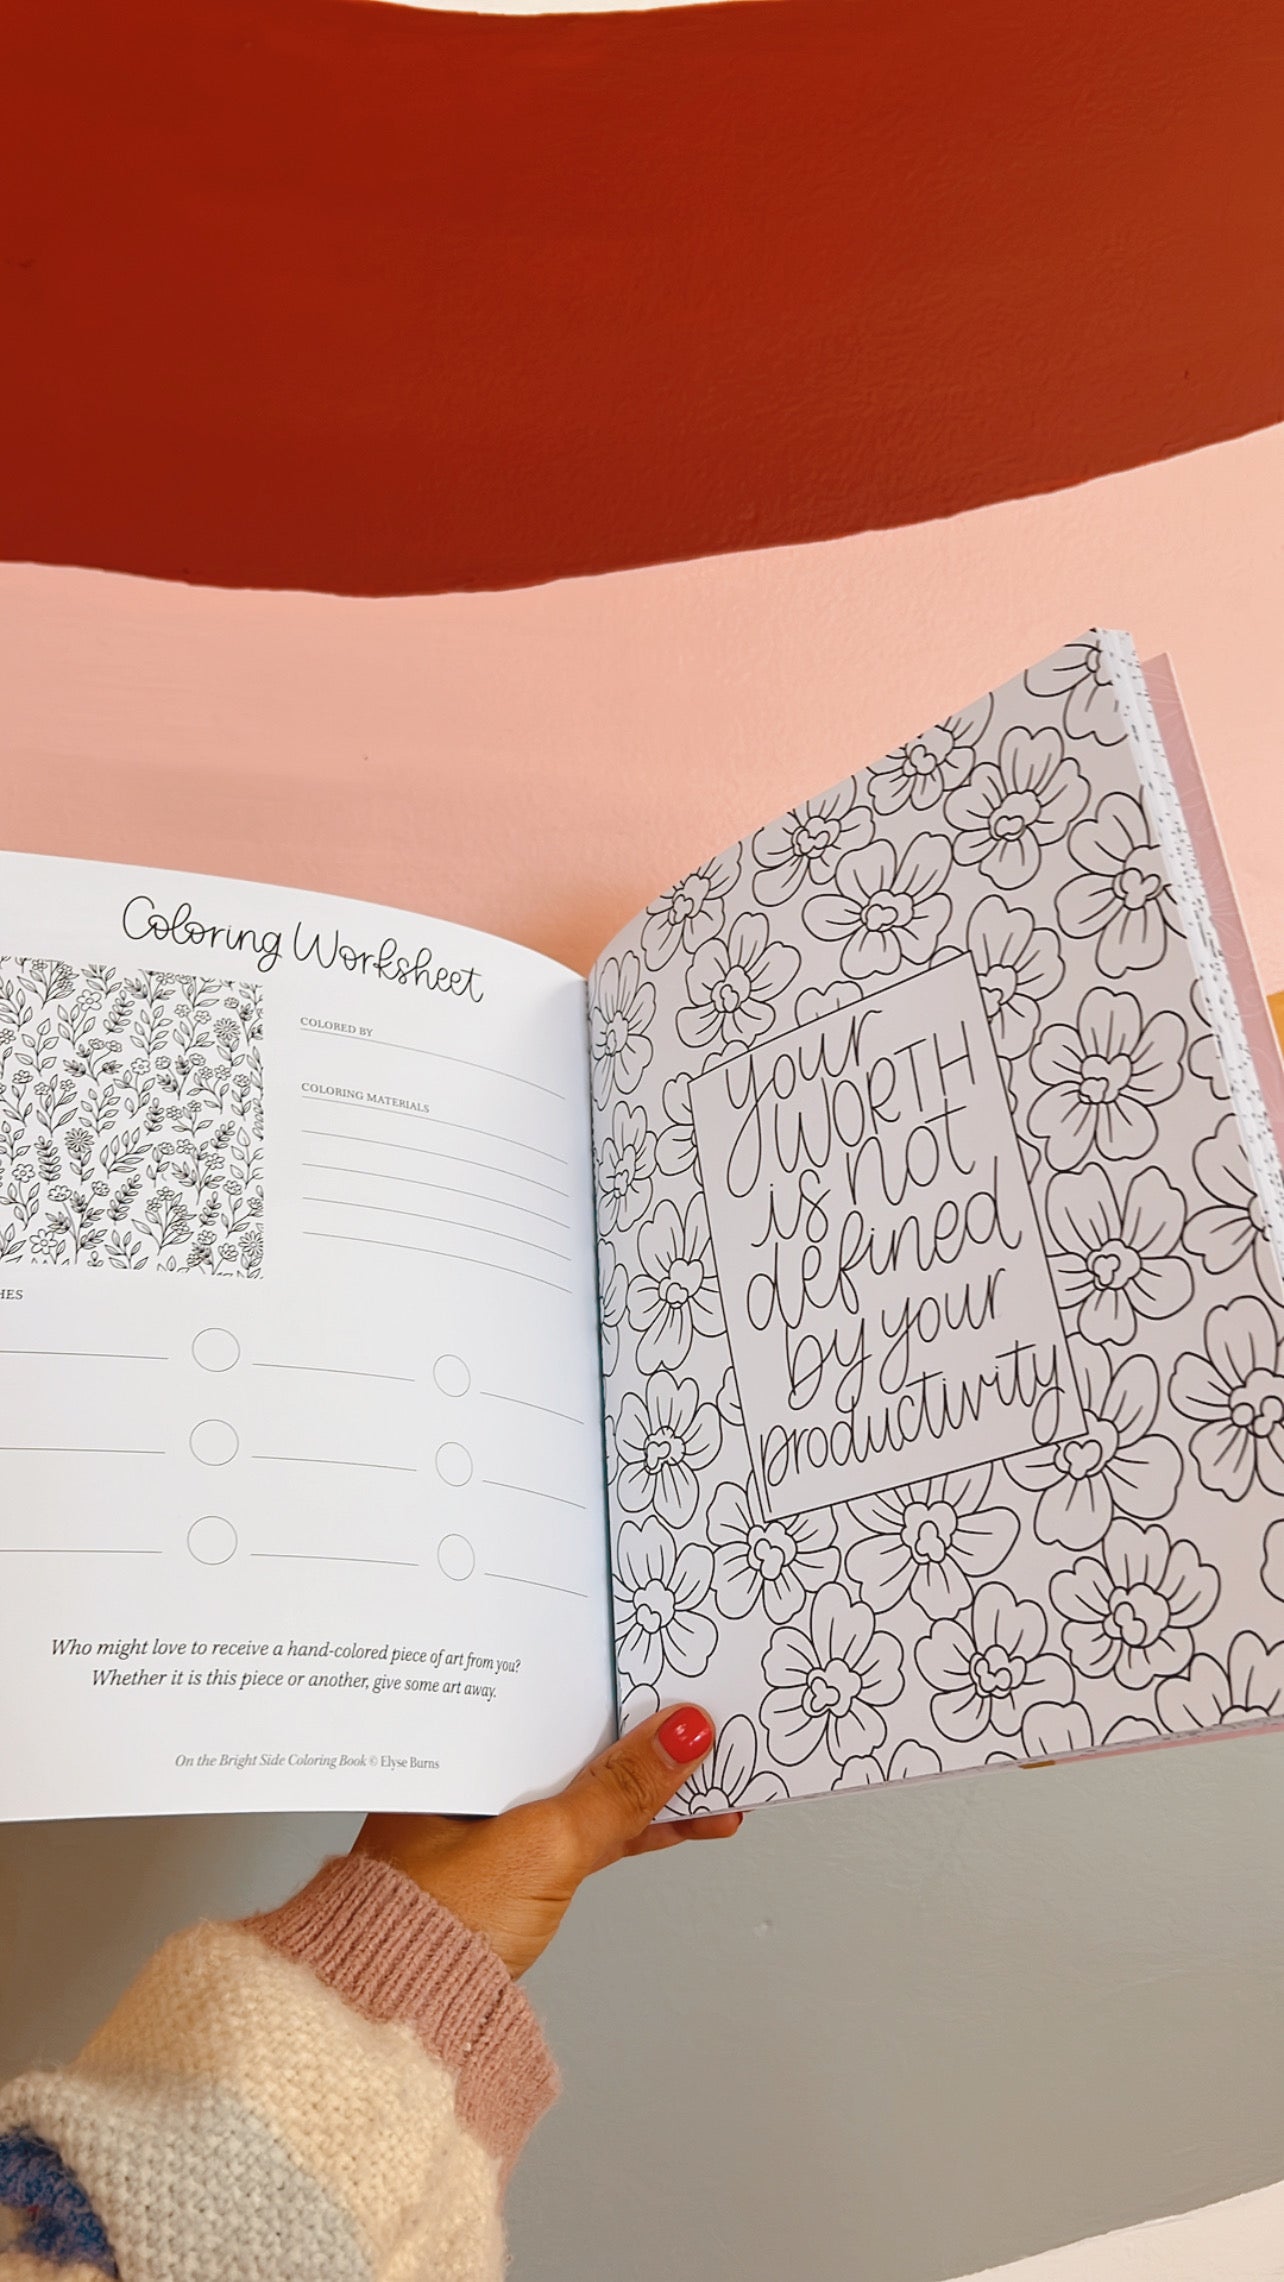 Coloring Worksheet
COLORED BY
COLORING MATERIALS
Who might love to receive a hand-colored piece of art from you?
Whether it is this piece or another, give some art away.
On the Bright Side Coloring Book © Elyse Burns
your
WORTH
is not
defined
by your
productivity